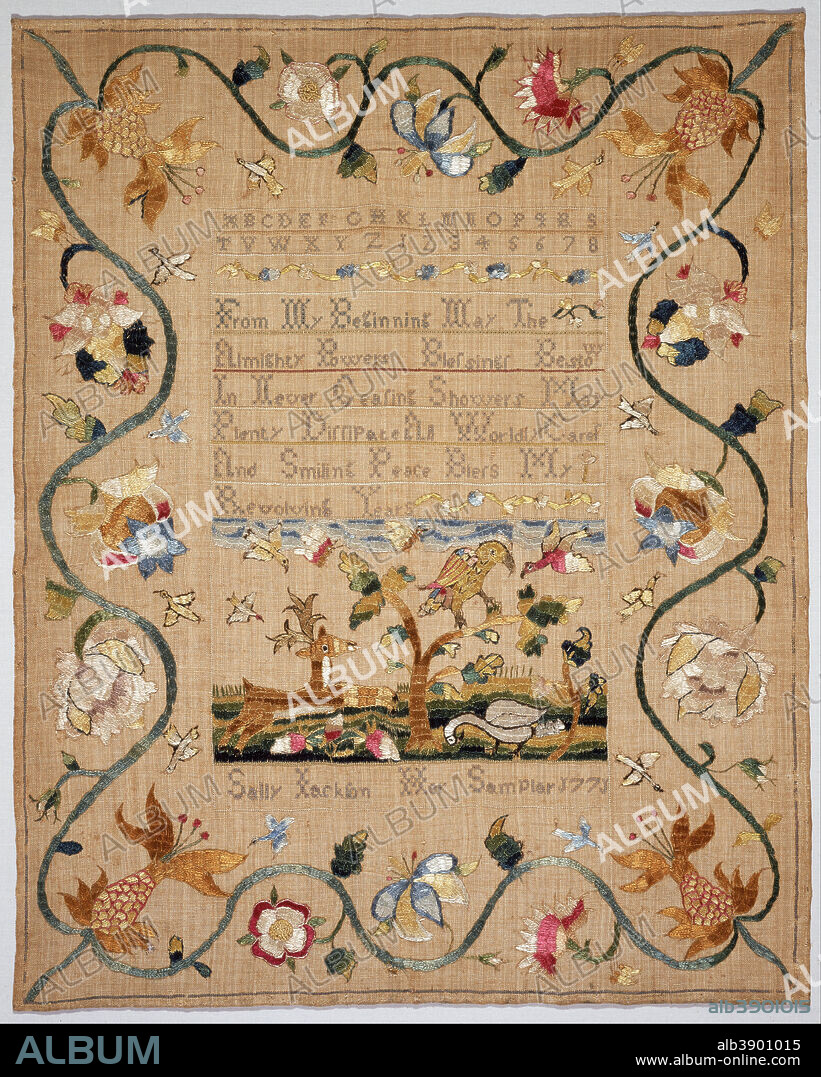 ABCDEFGHKLMNOPQRS
TVWXYZ12345678
From My Beginning May The
Almighty Powers Blefsings Bestow
In Never Ceasing Showers May
Plenty Difsipate All Worldly Care
And Smiling Peace Blefs My
Revolving Years
Sally Jackson Her Sampler 1771
ALBUM
alb3901015
ALBUM
alb3901015
www.album-online.com